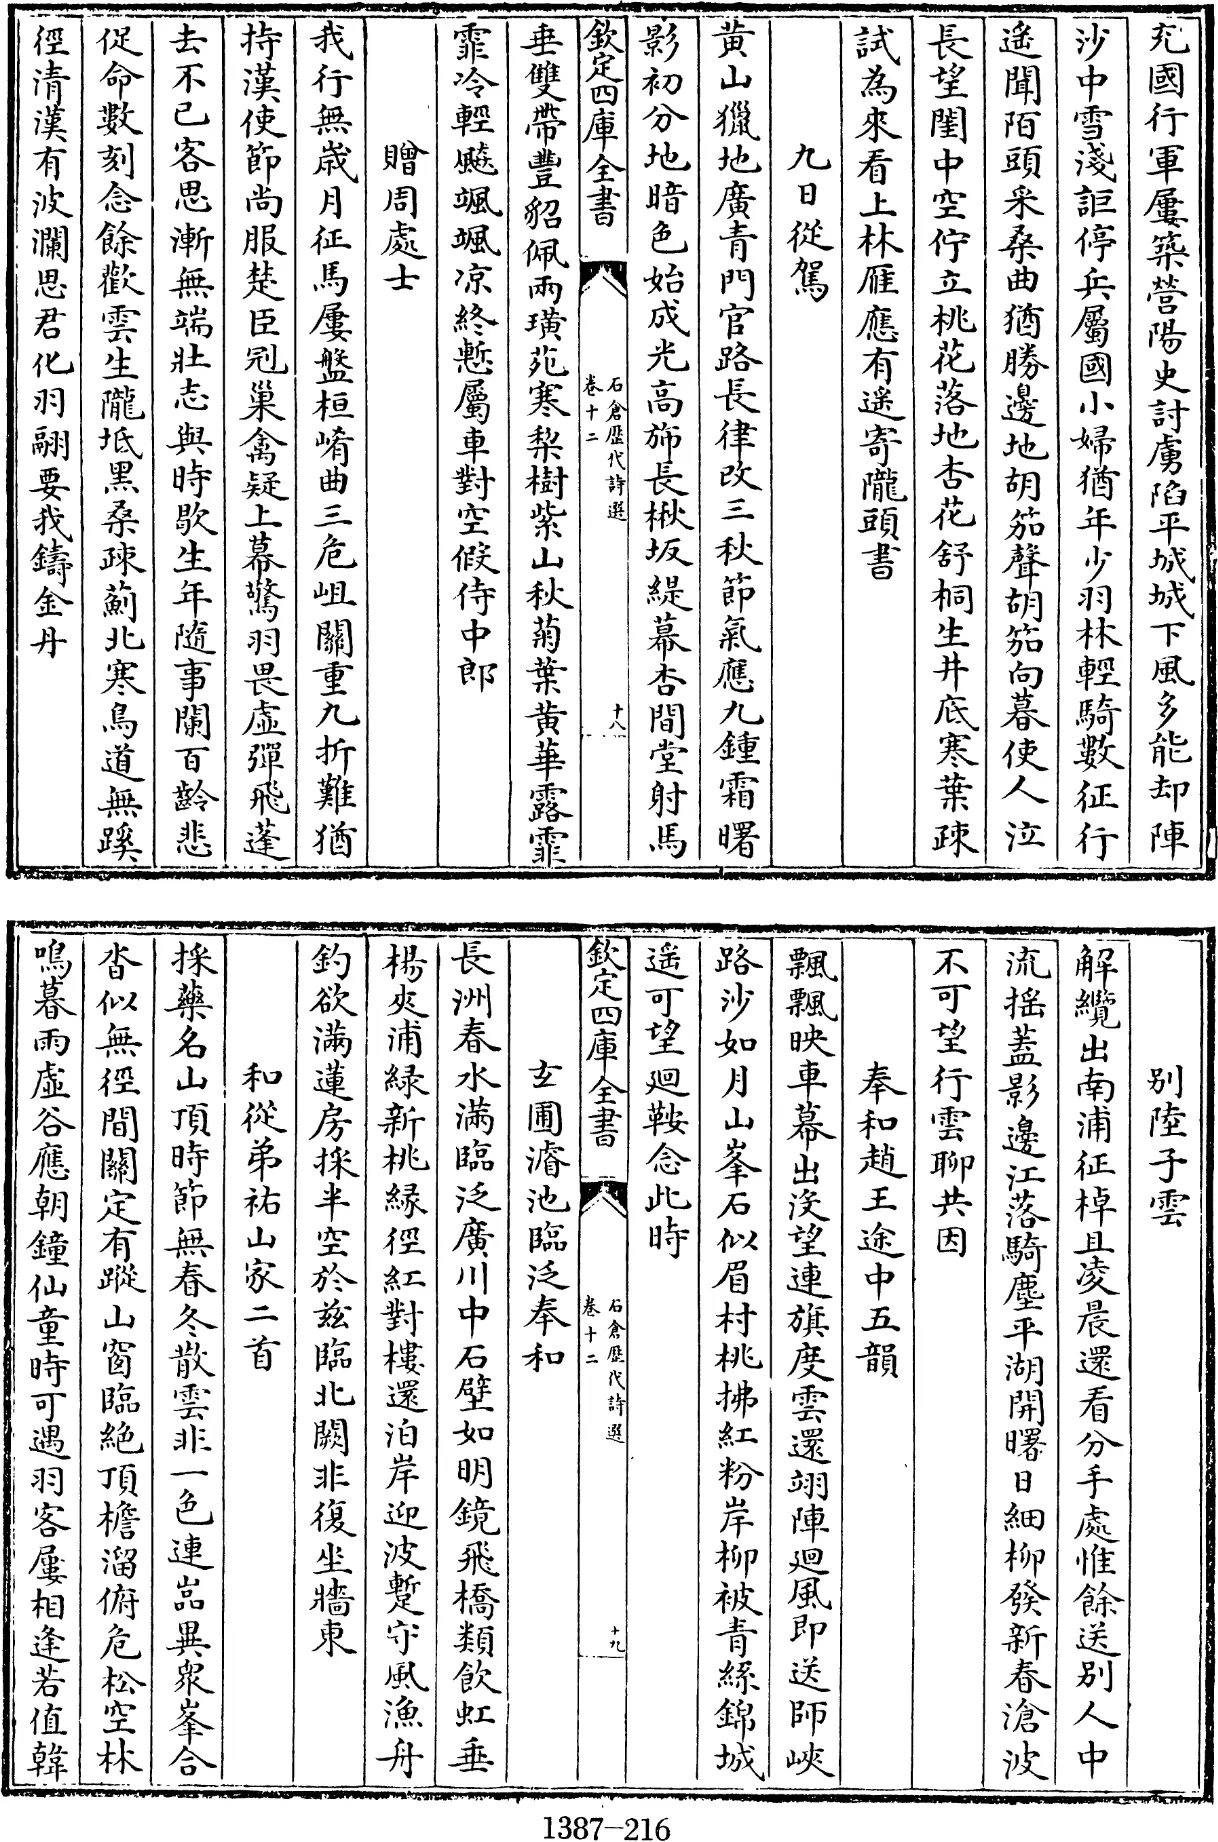 充國行軍屢築營陽史討虜陷平城城下風多能却陣
沙中雪淺詎停兵屬國小婦猶年少羽林輕騎數征行
遙聞陌頭采桑曲猶勝邊地胡笳聲胡笳向暮使人泣
長望閨中空佇立桃花落地杏花舒桐生井底寒葉疎
試為來看上林雁應有遙寄隴頭書
九日從駕
黃山獵地廣青門官路長律改三秋節氣應九鍾霜曙
影初分地暗色始成光高斾長楸坂緹幕杏間堂射馬
欽定四庫全書
石倉歷代詩選
卷十二
十八
垂雙帶豐貂佩兩璜苑寒梨樹紫山秋菊葉黃華露霏
霏冷輕飈颯颯凉終慙屬車對空假侍中郎
贈周處士
我行無歲月征馬屢盤桓崤曲三危岨關重九折難猶
持漢使節尚服楚臣冠巢禽疑上幕驚羽畏虛彈飛蓬
去不已客思漸無端壯志與時歇生年隨事闌百齡悲
促命數刻念餘歡雲生隴坻黑桑疎薊北寒鳥道無蹊
徑清漢有波瀾思君化羽翮要我鑄金丹
别陸子雲
解纜出南浦征棹且凌晨還看分手處惟餘送别人中
流揺蓋影邊江落騎塵平湖開曙日細柳發新春滄波
不可望行雲聊共因
奉和趙王途中五韻
飄飄映車幕出没望連旗度雲還翊陣廻風即送師峽
路沙如月山峯石似眉村桃拂紅粉岸柳被青絲錦城
遥可望廻鞍念此時
欽定四庫全書
石倉歷代詩選
卷十二
十九
玄圃濬池臨泛奉和
長洲春水滿臨泛廣川中石壁如明鏡飛橋類飲虹垂
楊夾浦綠新桃緣徑紅對樓還泊岸迎波蹔守風漁舟
釣欲滿蓮房採半空於兹臨北闕非復坐牆東
和從弟祐山家二首
採藥名山頂時節無春冬散雲非一色連嵓異衆峯合
沓似無徑間關定有蹤山窗臨絶頂檐溜俯危松空林
鳴暮雨虛谷應朝鐘仙童時可遇羽客屢相逢若值韓
1387-216